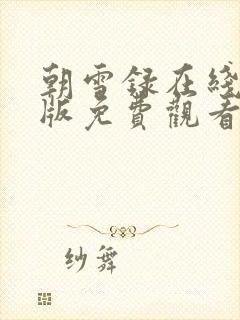 朝雪録在綫
版免費觀看
纱舞